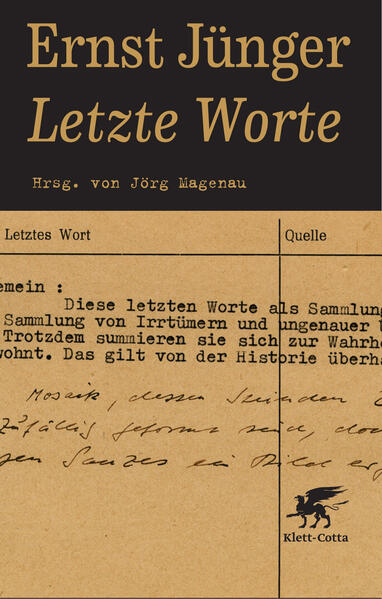 Ernst Jünger
Letzte Worte
Hrsg. von Jörg Magenau
Letztes Wort Quelle
emein :
Diese letzten Worte als Sammlung
Sammlung von Irrtümern und ungenauer
Trotzdem summieren sie sich zur Wahrhe
wohnt. Das gilt von der Historie überha
Mosaik, dessen
zufällig geformt sind, doc
gen Ganzes ein Bild erg
Klett-Cotta